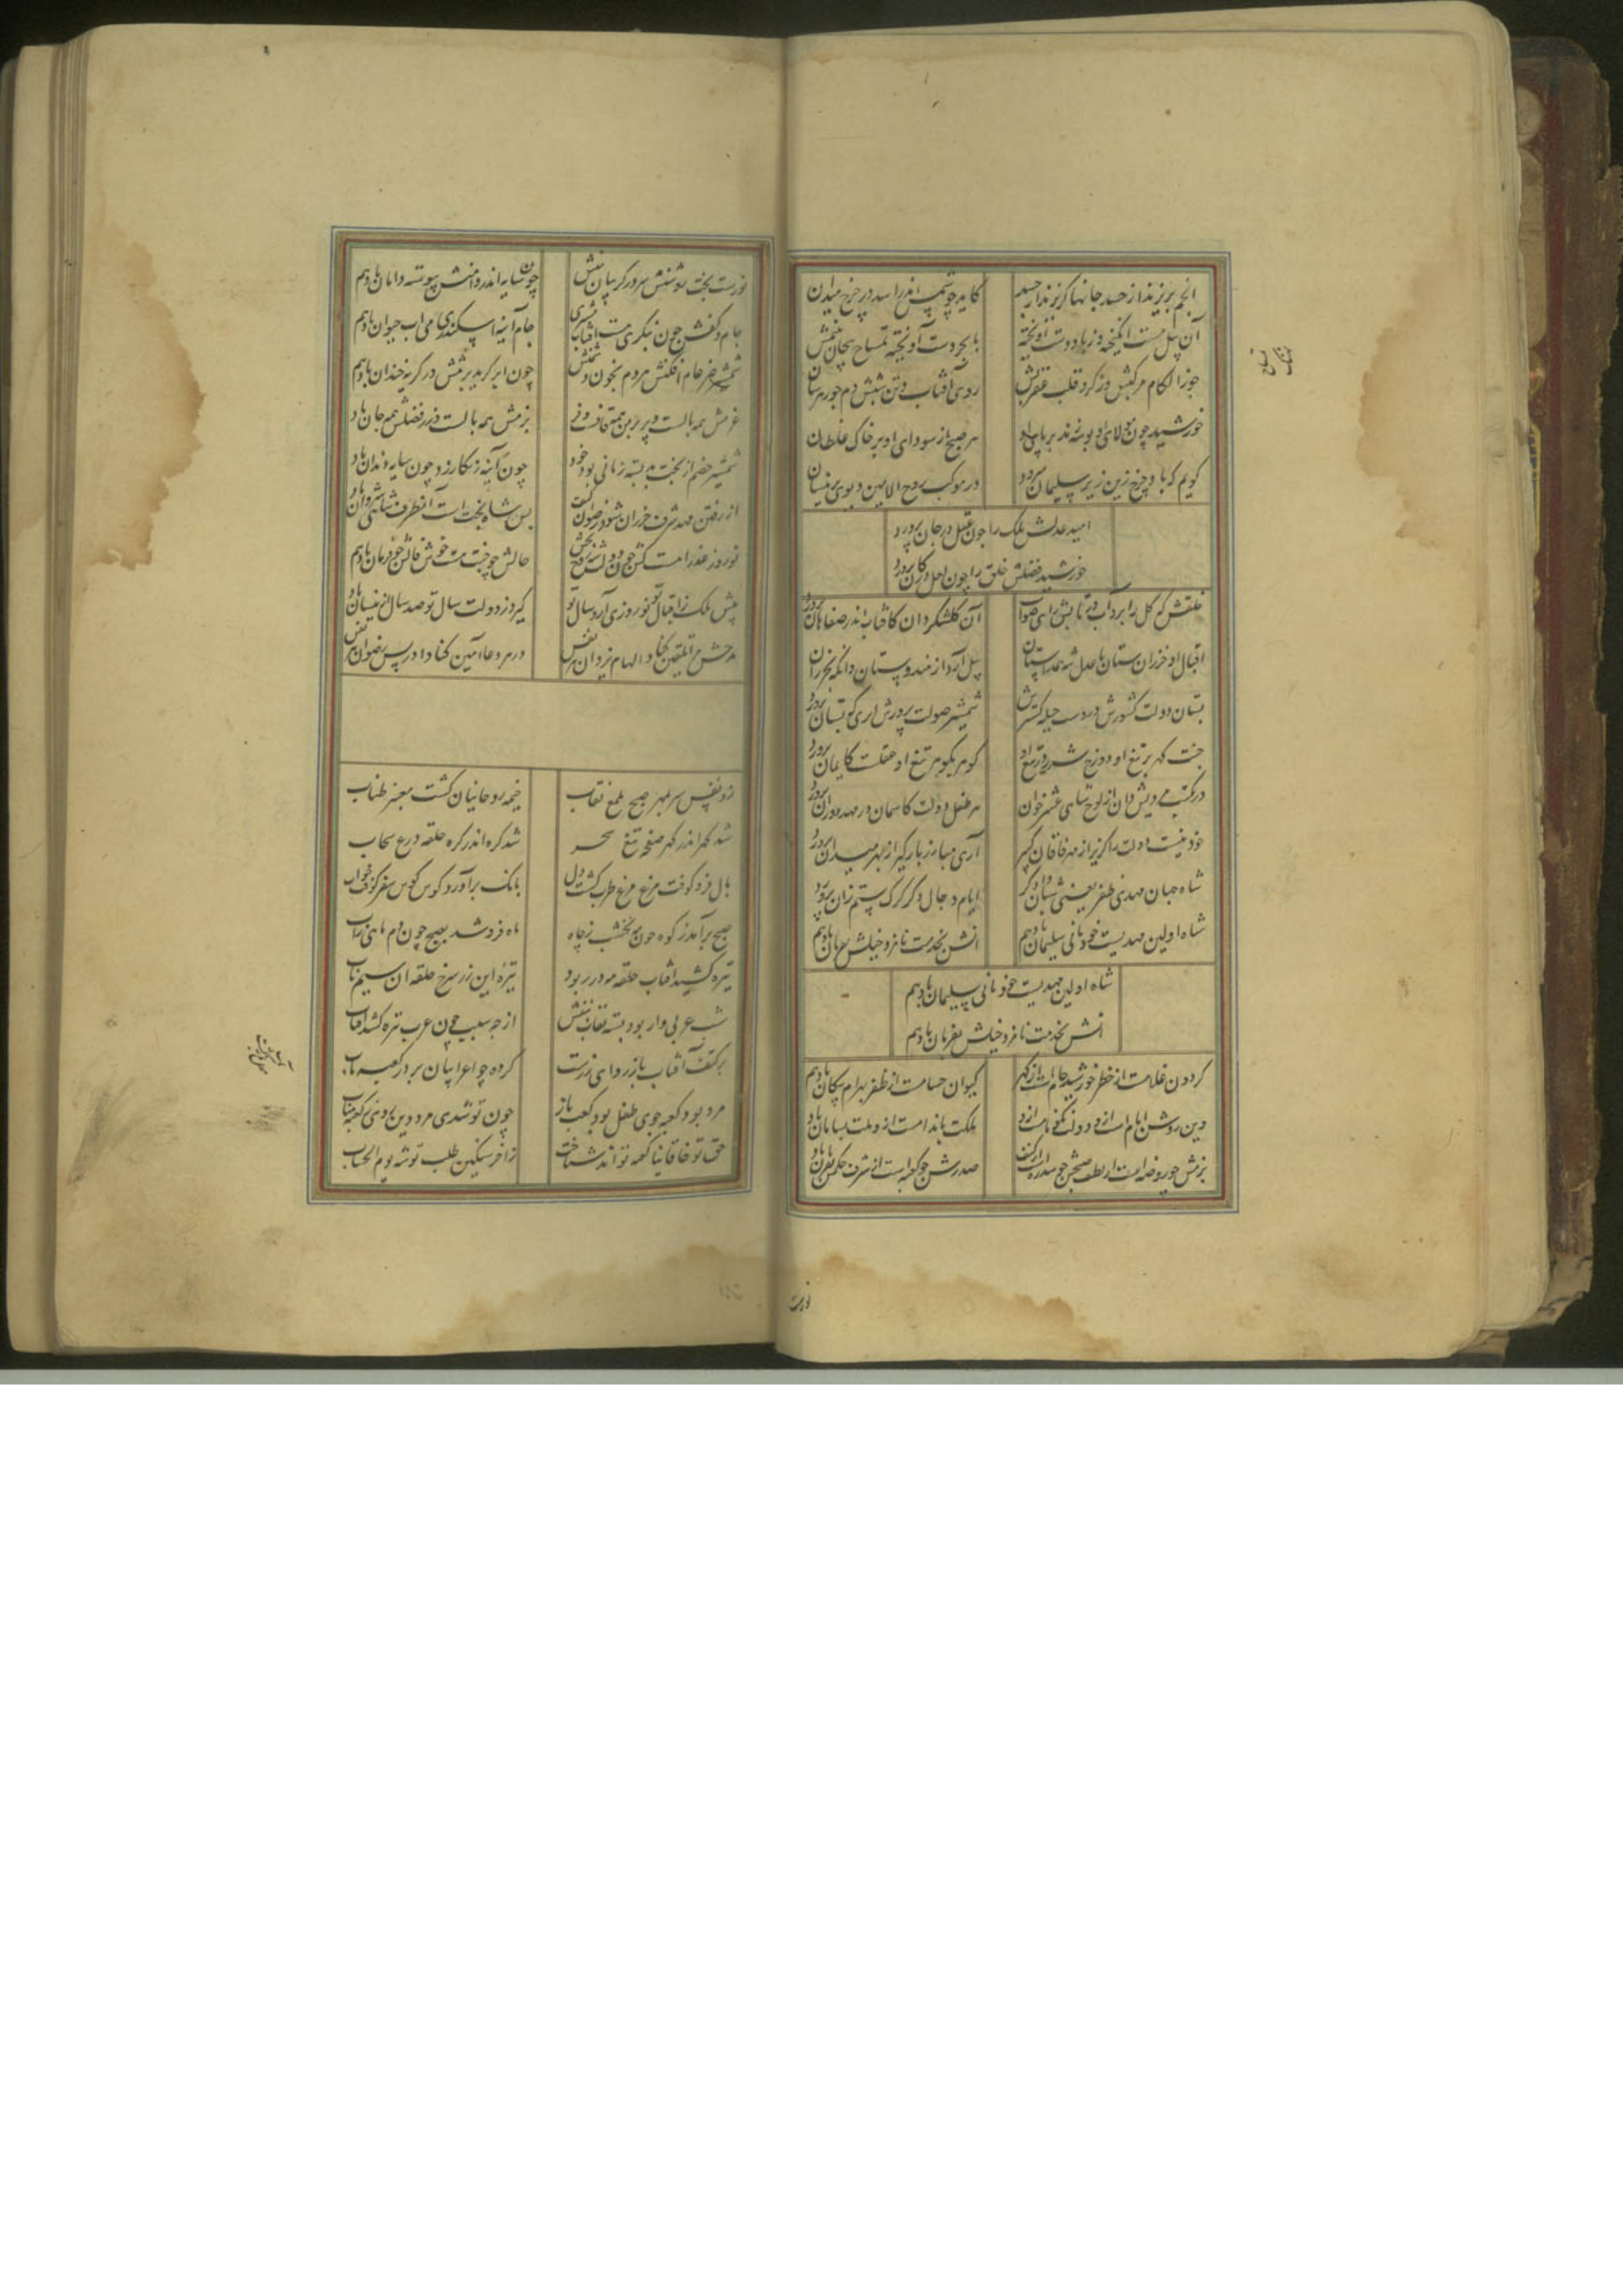 انجم بریزند از حسد جانها کزو ندارد جسد
کاید چو شمس اندر اسد در چرخ میدان
آن پیل مست انگیخته وز باد دست آویخته
با بحر دست آویخته تمساح پیچان بینمش
جوزا لگام مرکبش وز کرد قلب عقربش
روی آفتاب و تن شبش دم جوزهرسان
خورشید چون مولای او بوسه زند بر پای او
هر صبح از سودای او بر خاک غلطان
گویم که با و چرخ زین زیر سلیمان
در موکب روح الامین دیو پری
امید عدلش ملک را چون عقل در جان پرورد
خورشید فضلش خلق را چون لعل در کان پرورد
خلقش که گل را برد آب در تابش رای صواب
آن گلشکر دان کافتاب اندر صفاهان پرورد
اقبال او خزران ستان با عدل شد همداستان
پیل آرد از هندوستان وانگه بخزران
بستان دولت کشورش در دست حیله گسترش
شمشیر صولت پرورش آری که بستان پرورد
جنت گهر بر تیغ او دوزخ شرر در تیغ او
گوهر نگوهر تیغ او عقلست کایمان پرورد
در مکتب مردیش دان از لوح شاهی عشر خوان
هر طفل دولت کاسمان در مهد دوران پرورد
خود نیست دولت را گزیر از مهر خاقان کبیر
آری مبارز بارگیر از بهر میدان پرورد
شاه جهان مهدی ظفر یعنی شبان دادگر
ایام دجال دگر گرگ ستم زان پرورد
شاه اولین مهدیست خود ثانی سلیمان باد هم
انسش بخدمت نامزد خیلش بفرمان باد هم
شاه اولین مهدیست خود ثانی سلیمان باد هم
انسش بخدمت نامزد خیلش بفرمان باد هم
گردون غلامست از خطر خورشید جامست از گهر
کیوان حسامست از ظفر بهرام پیکان باد هم
دین روشن ایام است ازو دولت نکونامست ازو
ملکت باندامست ازو ملت بسامان باد
بزمش چو روضه است از لطف صحنش چو سدره است از کنف
صدرش چو کعبه است از شرف حکمش
نورست
نورست بخت روشنش سر در گریبان
چون سایه اندر دامنش پیوسته دامان باد هم
جام و کفش چون بنگری هست آفتاب و مشتری
جام آینه اسکندری می آب حیوان باد هم
شمشیر ضرغام افکنش مردم بخون
چون ابر گرید بر تنش در گریه خندان باد هم
عزمش همه بالست و پر بر من همت
بزمش همه بالست و زر فضلش همه جان باد
شمشیر خصم از بخت بد بسته زبانی بود خود
چون آینه زنگار زد چون سایه دندان باد
از رفتن مهد شرف خزران شود رضوان کنف
بس شاه بخت است آنطرف شاهی شروان
نوروز عذرا هست کش چون وقت شه روح بخش
حالش چو بخت هست خوش فالش چو فرمان باد هم
پیش ملک ز اقبال تو نوروزی آرد سال تو
گیرد ز دولت سال تو صد سال ازینسان باد
مدحش را تلقین کناد الهام یزدان
در هر دعا آمین کناد ادریس و رضوان هر نفس
زد نفس سر بمهر صبح ملمع نقاب
خیمه روحانیان گشت معنبر طناب
شد گهر اندر گهر صفحه تیغ سحر
شد گره اندر گره حلقه درع سحاب
بال فرو کوفت مرغ مرغ طرب گشت دل
بانگ برآورد کوس کوس سفر کوفت خواب
صبح برآمد ز کوه چون مه نخشب ز چاه
ماه فرو شد بصبح چون دم ماهی ز آب
نیزه کشید آفتاب حلقه مه در ربود
نیزه این زر سرخ حلقه آن سیم ناب
شب عربی وار بود بسته نقاب بنفش
از چه سبب چون عرب نیزه کشید آفتاب
بر کتف آفتاب باز ردای زرست
کرده چو اعرابیان بر در کعبه مآب
مرد بود کعبه جوی طفل بود کعب باز
چون تو شدی مرد دین روی ز کعبه متاب
حق تو خاقانیا کعبه تواند شناخت
ز آخر سنگین طلب توشه یوم الحساب